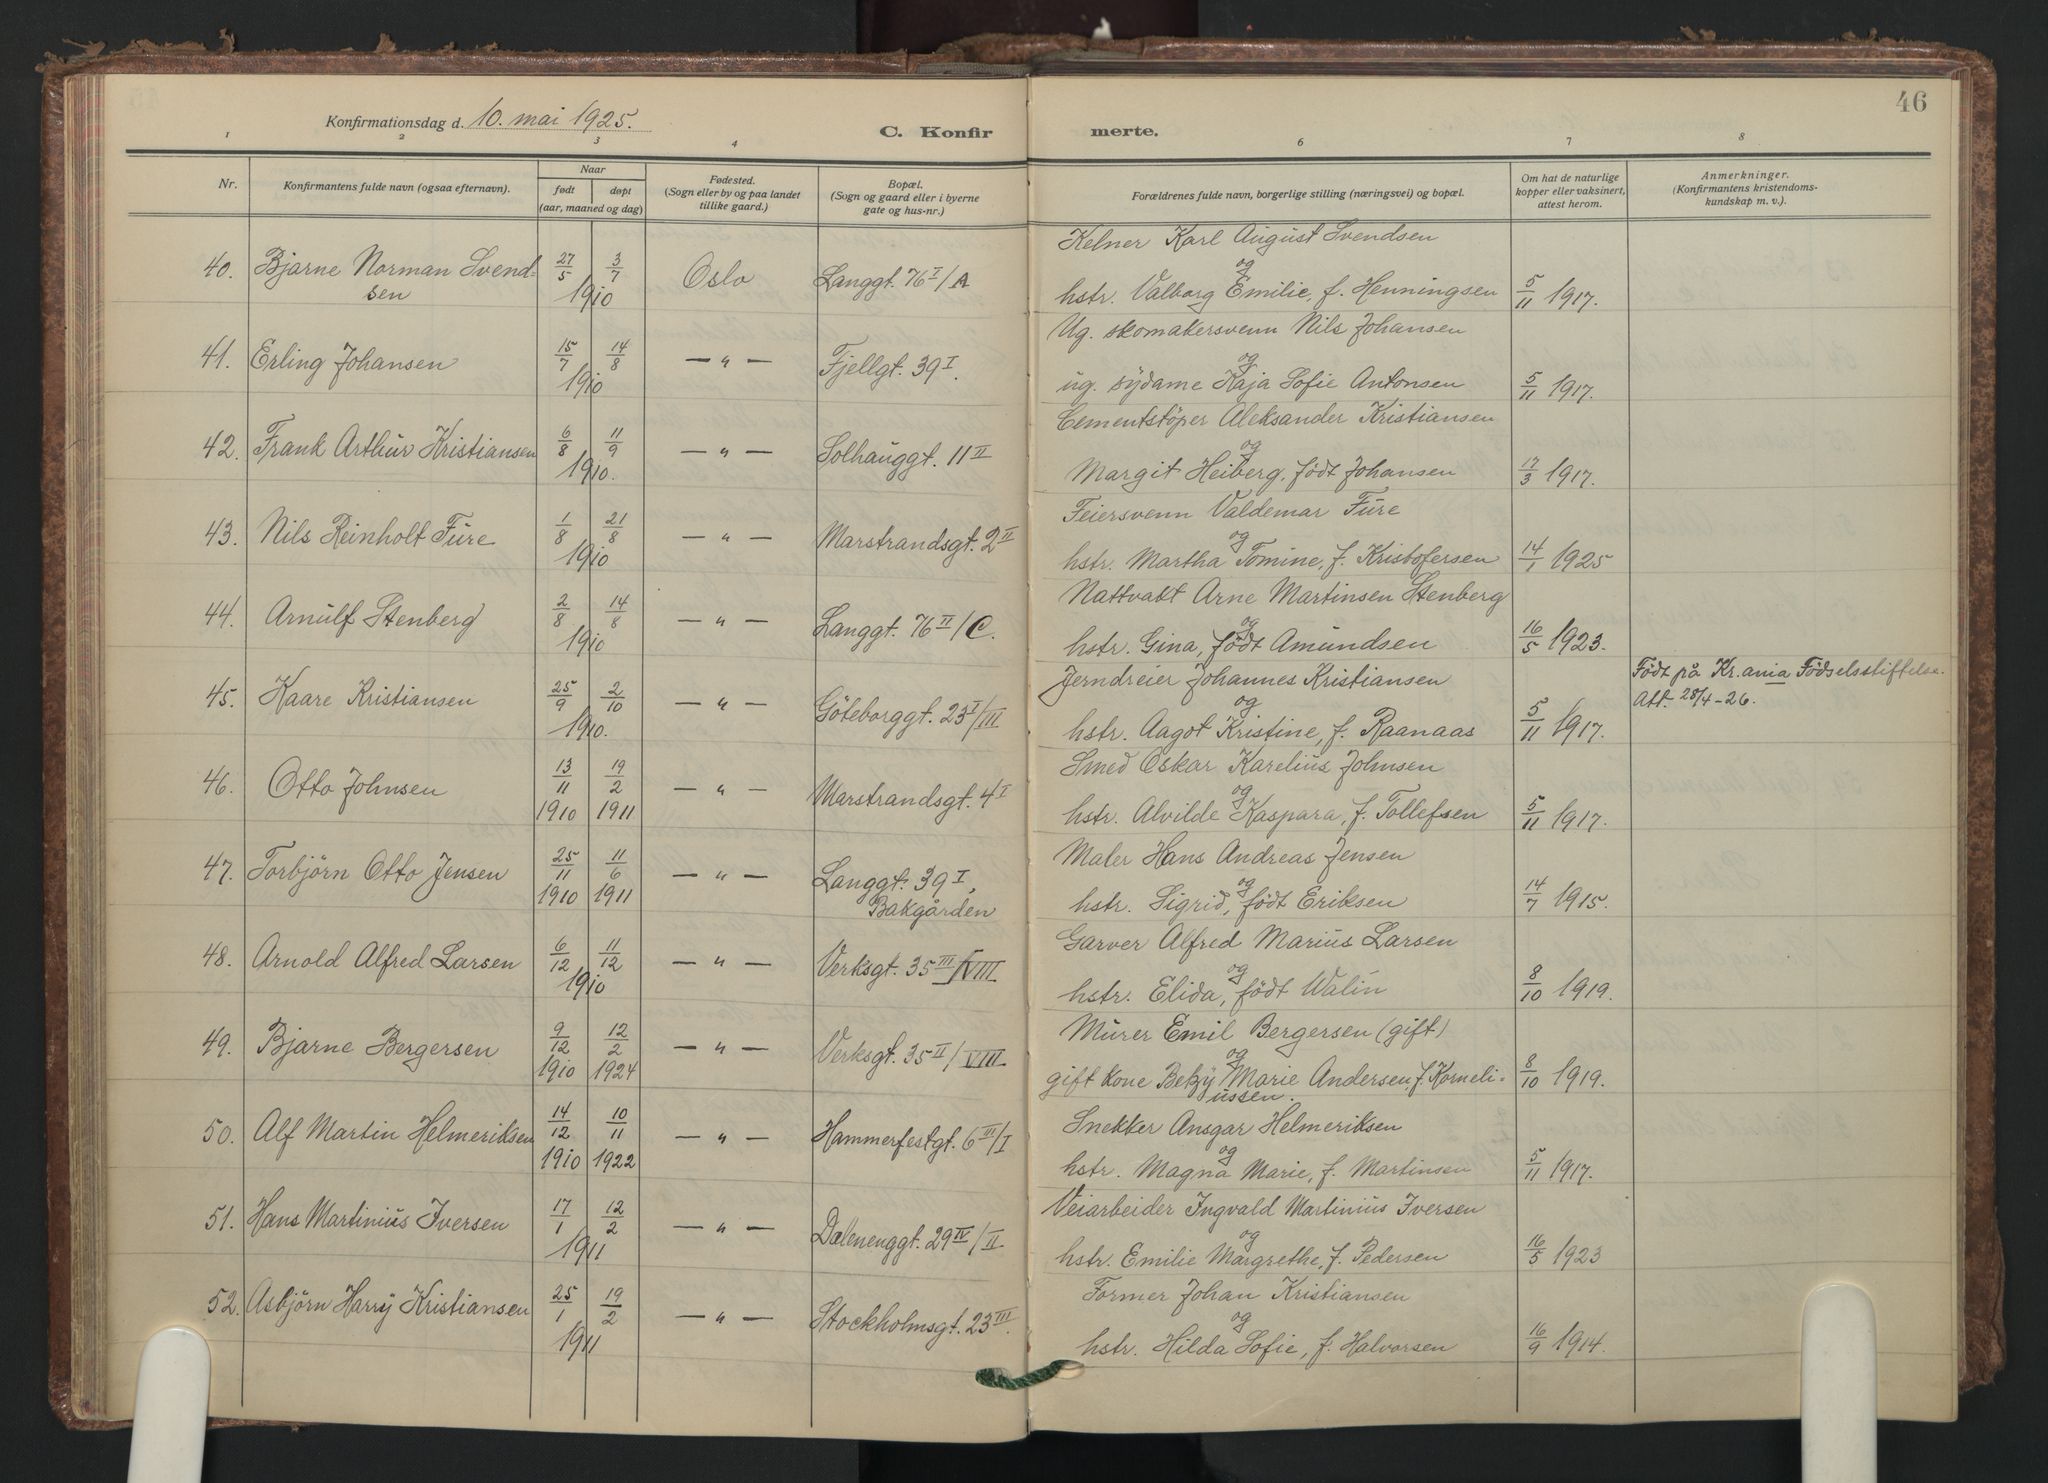 46
Konfirmationsdag d. 10. mai 1925.
C. Konfirmerte.
1 2 3 4 6 7 8
Nr.
Konfirmantens fulde navn (ogsaa efternavn).
Naar
født
døpt
(aar, maaned og dag)
Fødested.
(Sogn eller by og paa landet
tillike gaard.)
Bopæl.
(Sogn og gaard eller i byerne
gate og hus-nr.)
Forældrenes fulde navn, borgerlige stilling (næringsvei) og bopæl.
Om hat de naturlige
kopper eller vaksinert,
attest herom.
Anmerkninger.
(Konfirmantens kristendoms-
kundskap m. v.)
Kelner Karl August Svendsen
og
40. Bjarne Norman Svend- 27/5 3/7 Oslo Langgt. 76 I/A
sen 1910
hstr. Valborg Emilie, f. Henningsen 5/11 1917.
Ug. skomakersvenn Nils Johansen
og
41. Erling Johansen 15/7 14/8 1910 — " — Fjellgt. 39 I.
ug. sydame Kaja Sofie Antonsen 5/11 1917.
Cementstöper Aleksander Kristiansen
og
42. Frank Arthur Kristiansen 6/8 11/9 1910. — " — Solhauggt. 11 II
Margit Heiberg, födt Johansen 17/3 1917.
Feiersvenn Valdemar Füre
og
43. Nils Reinholt Füre 1/8 21/8 1910 — " — Marstrandsgt. 2 II
hstr. Martha Tomine, f. Kristofersen 14/1 1925
Nattvakt Arne Martinsen Stenberg
og
44. Arnulf Stenberg 2/8 14/8 1910 — " — Langgt. 76 II/C.
hstr. Gina, födt Amundsen 16/5 1923.
Jerndreier Johannes Kristiansen
og
45. Kaare Kristiansen 25/9 2/10 1910. — " — Göteborggt. 23 I/III
hstr. Aagot Kristine, f. Raanaas 5/11 1917.
Födt på Kr.ania Födselsstiftelse.
Att. 28/4-26.
Smed Oskar Karelius Johnsen
og
46. Otto Johnsen 13/11 1910 19/2 1911 — " — Marstrandsgt. 4 I
hstr. Alvilde Kaspara, f. Tollefsen 5/11 1917.
Maler Hans Andreas Jensen
og
47. Torbjörn Otto Jensen 25/11 1910 11/6 1911 — " — Langgt. 39 I,
Bakgården
hstr. Sigrid, födt Eriksen 14/7 1915.
Garver Alfred Marius Larsen
og
48. Arnold Alfred Larsen 6/12 11/12 1910 — " — Verksgt. 35 III/VIII
hstr. Elida, födt Walin 8/10 1919.
Murer Emil Bergersen (gift)
og
49. Bjarne Bergersen 9/12 1910 12/2 1924 — " — Verksgt. 35 II/VIII
gift kone Betzy Marie Andersen, f. Korneli-
ussen. 8/10 1919.
Snekker Ansgar Helmeriksen
og
50. Alf Martin Helmeriksen 14/12 1910 10/11 1922 — " — Hammerfestgt. 6 III/I
hstr. Magna Marie, f. Martinsen 5/11 1917.
Veiarbeider Ingvald Martinius Iversen
og
51. Hans Martinius Iversen 17/1 12/2 1911 — " — Dælenenggt. 29 IV/II
hstr. Emilie Margrethe, f. Pedersen 16/5 1923
Former Johan Kristiansen
og
52. Asbjörn Harry Kristiansen 25/1 19/2 1911 — " — Stockholmsgt. 23 III.
hstr. Hilda Sofie, f. Halvorsen 16/9 1914.